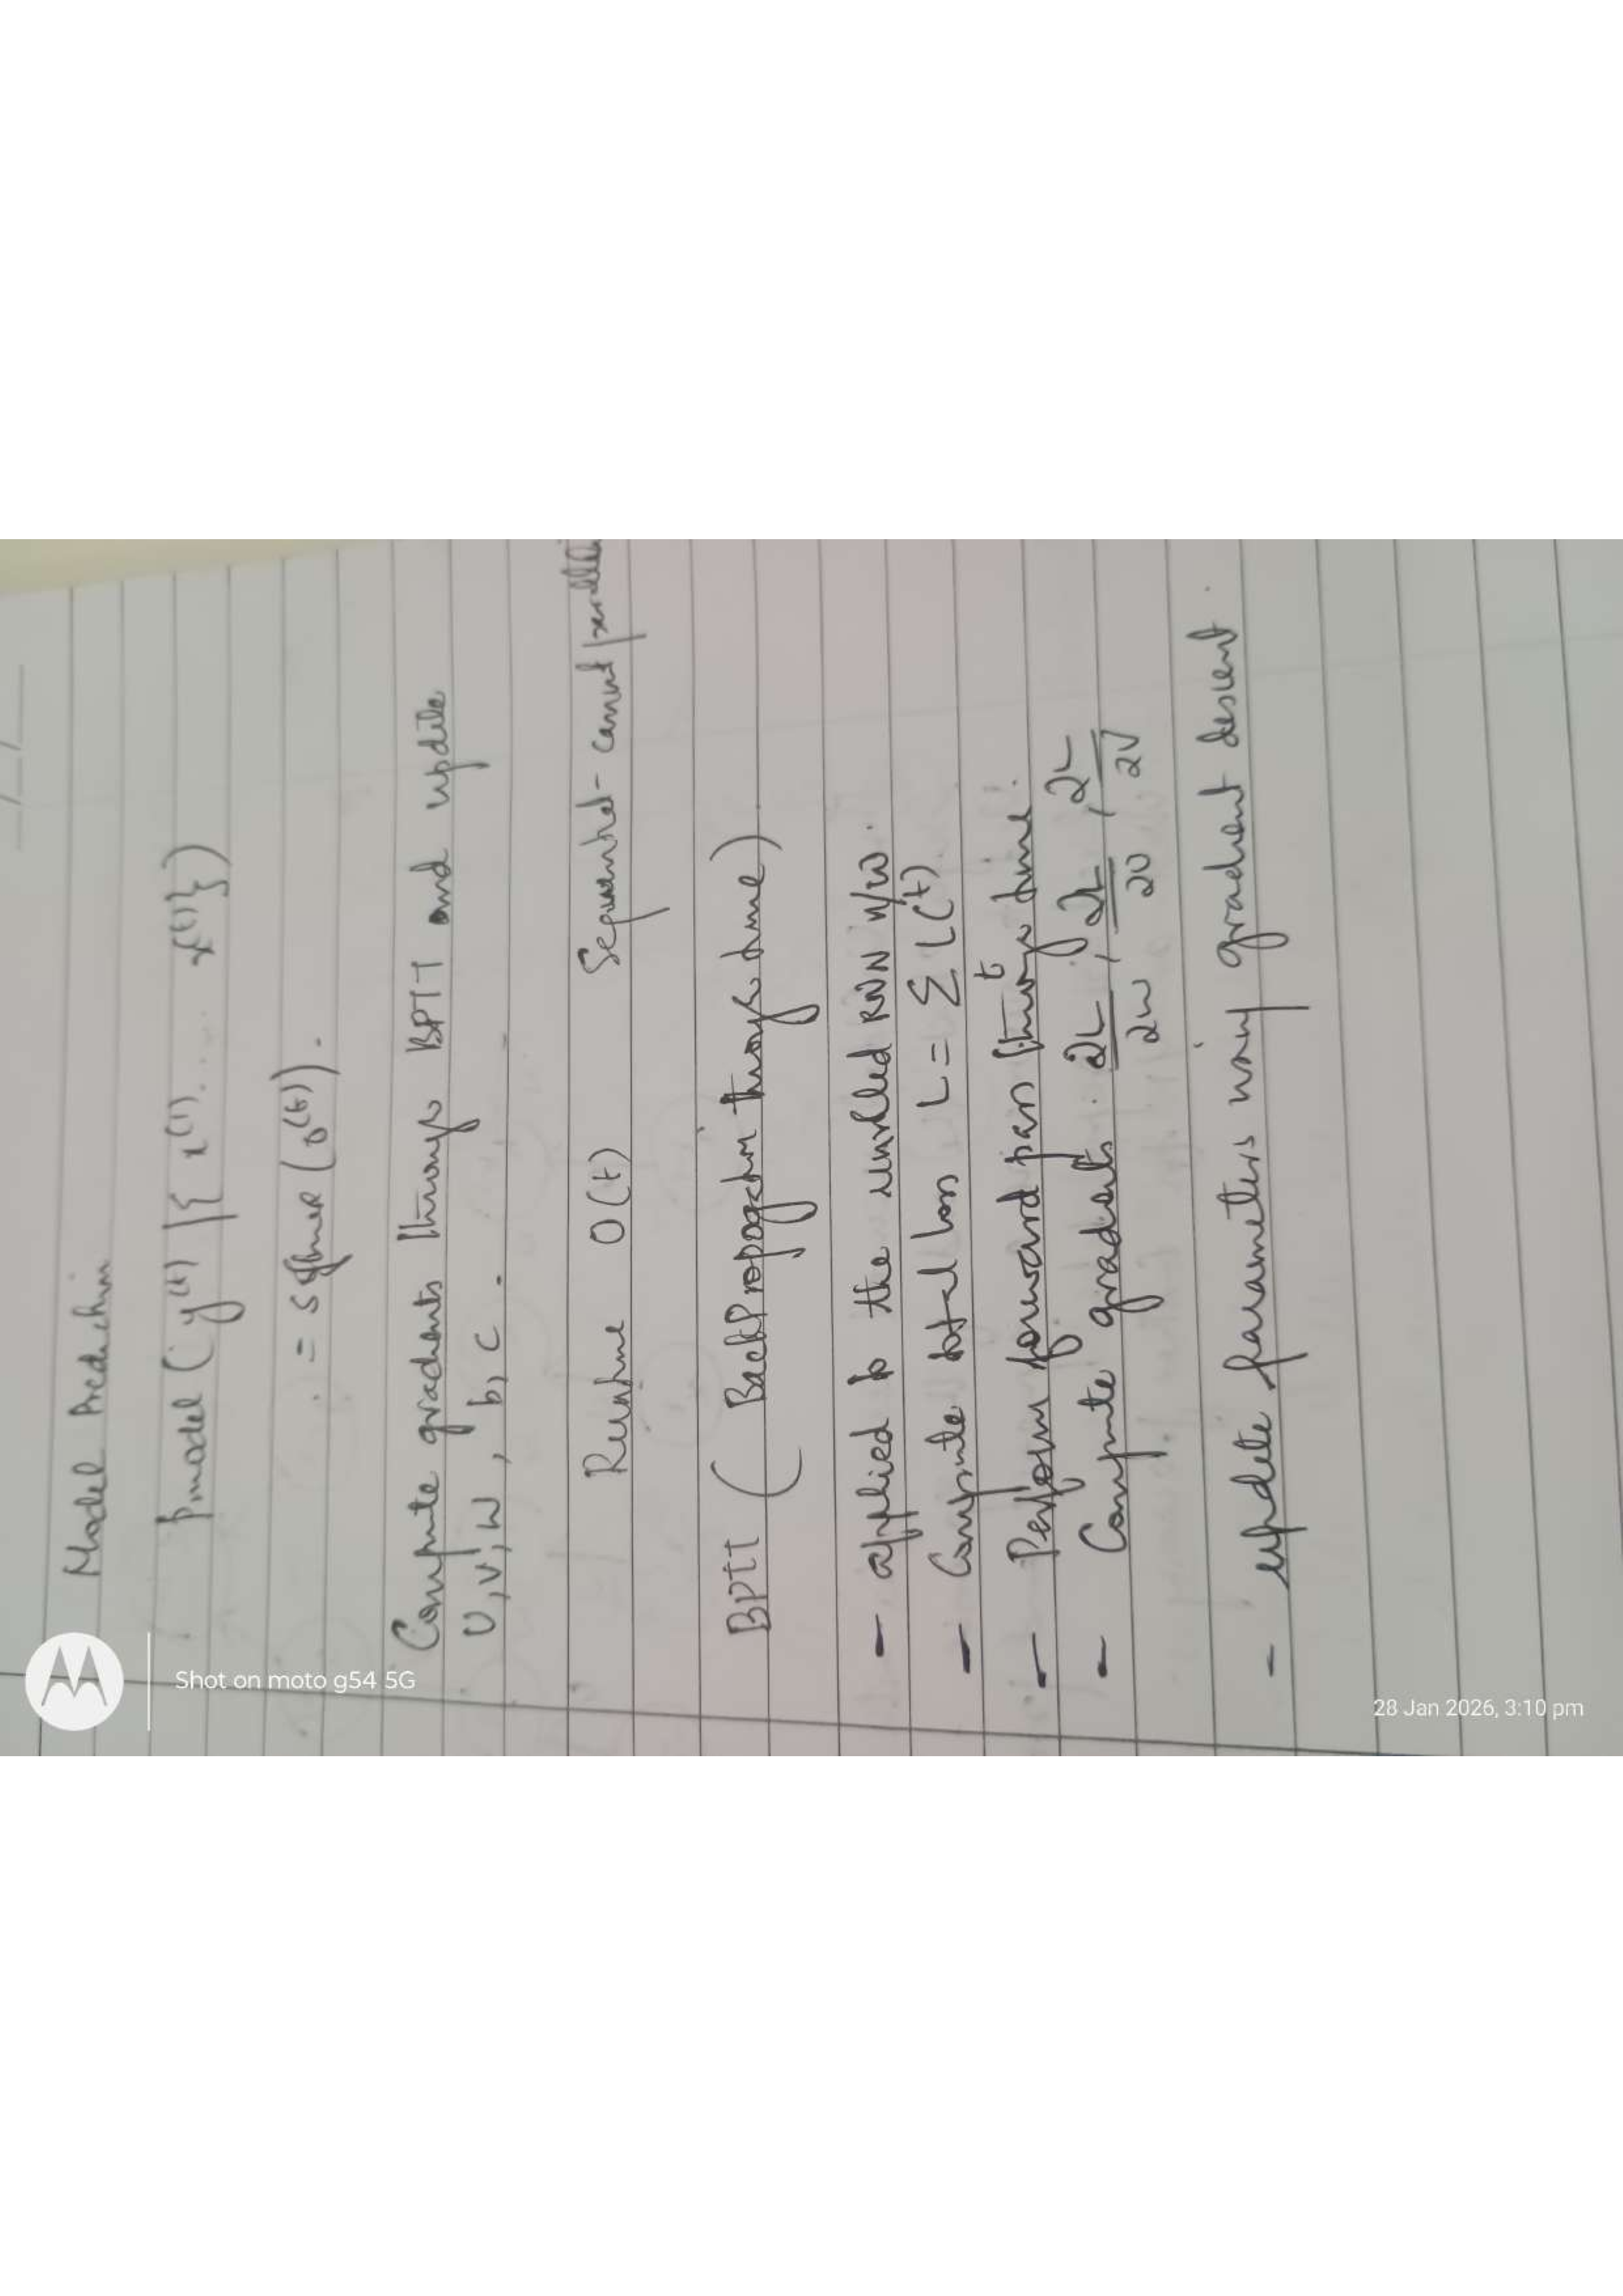 Model Prediction
Pmodel (y(t) | { x(1) .... x(t)})
= softmax (o(t)).
Compute gradients through BPTT and update
U, V, W, b, c.
Runtime O(t) Sequential - cannot
BPTT (BackPropogation through time)
- applied to the unrolled RNN n/w.
- Compute total loss L = Σ L(t)
t
- Perform forward pass through time.
- Compute gradients ∂L/∂W, ∂L/∂U, ∂L/∂V
- update parameters using gradient descent.
Shot on moto g54 5G
28 Jan 2026, 3:10 pm